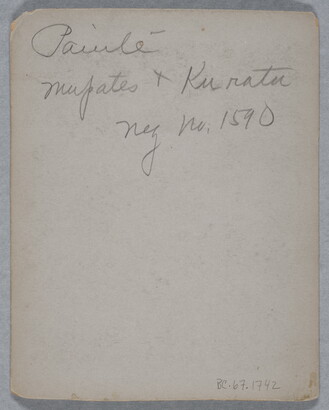 Paiute
mupates + Ku ratu
neg no. 1590
BC.67.1742